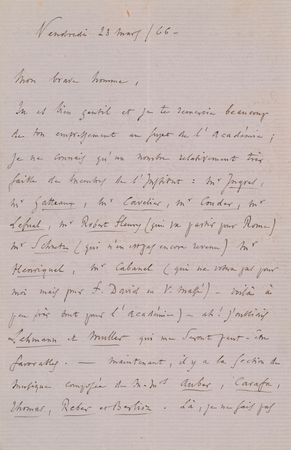 Vendredi 23 mars/66 -
Mon brave homme,
Tu es bien gentil et je te remercie beaucoup
de ton empressement au sujet de l'Académie ;
je ne connais qu'un nombre relativement très
faible de membres de l'Institut : Mr Ingres,
Mr Gatteaux, Mr Cavelier, Mr Couder, Mr
Lefuel, Mr Robert Fleury (qui va partir pour Rome)
Mr Schnetz (qui n'est pas encore revenu) Mr
Henriquel, Mr Cabanel (qui ne votera pas pour
moi mais pour F. David ou V. Massé) - voilà à
peu près tout pour l'Académie) - ah ! j'oubliais
Lehmann et Muller qui me seront peut-être
favorables. — maintenant, il y a la section de
Musique composée de M.Mrs Auber, Carafa,
Thomas, Reber et Berlioz. Là, je ne fais pas